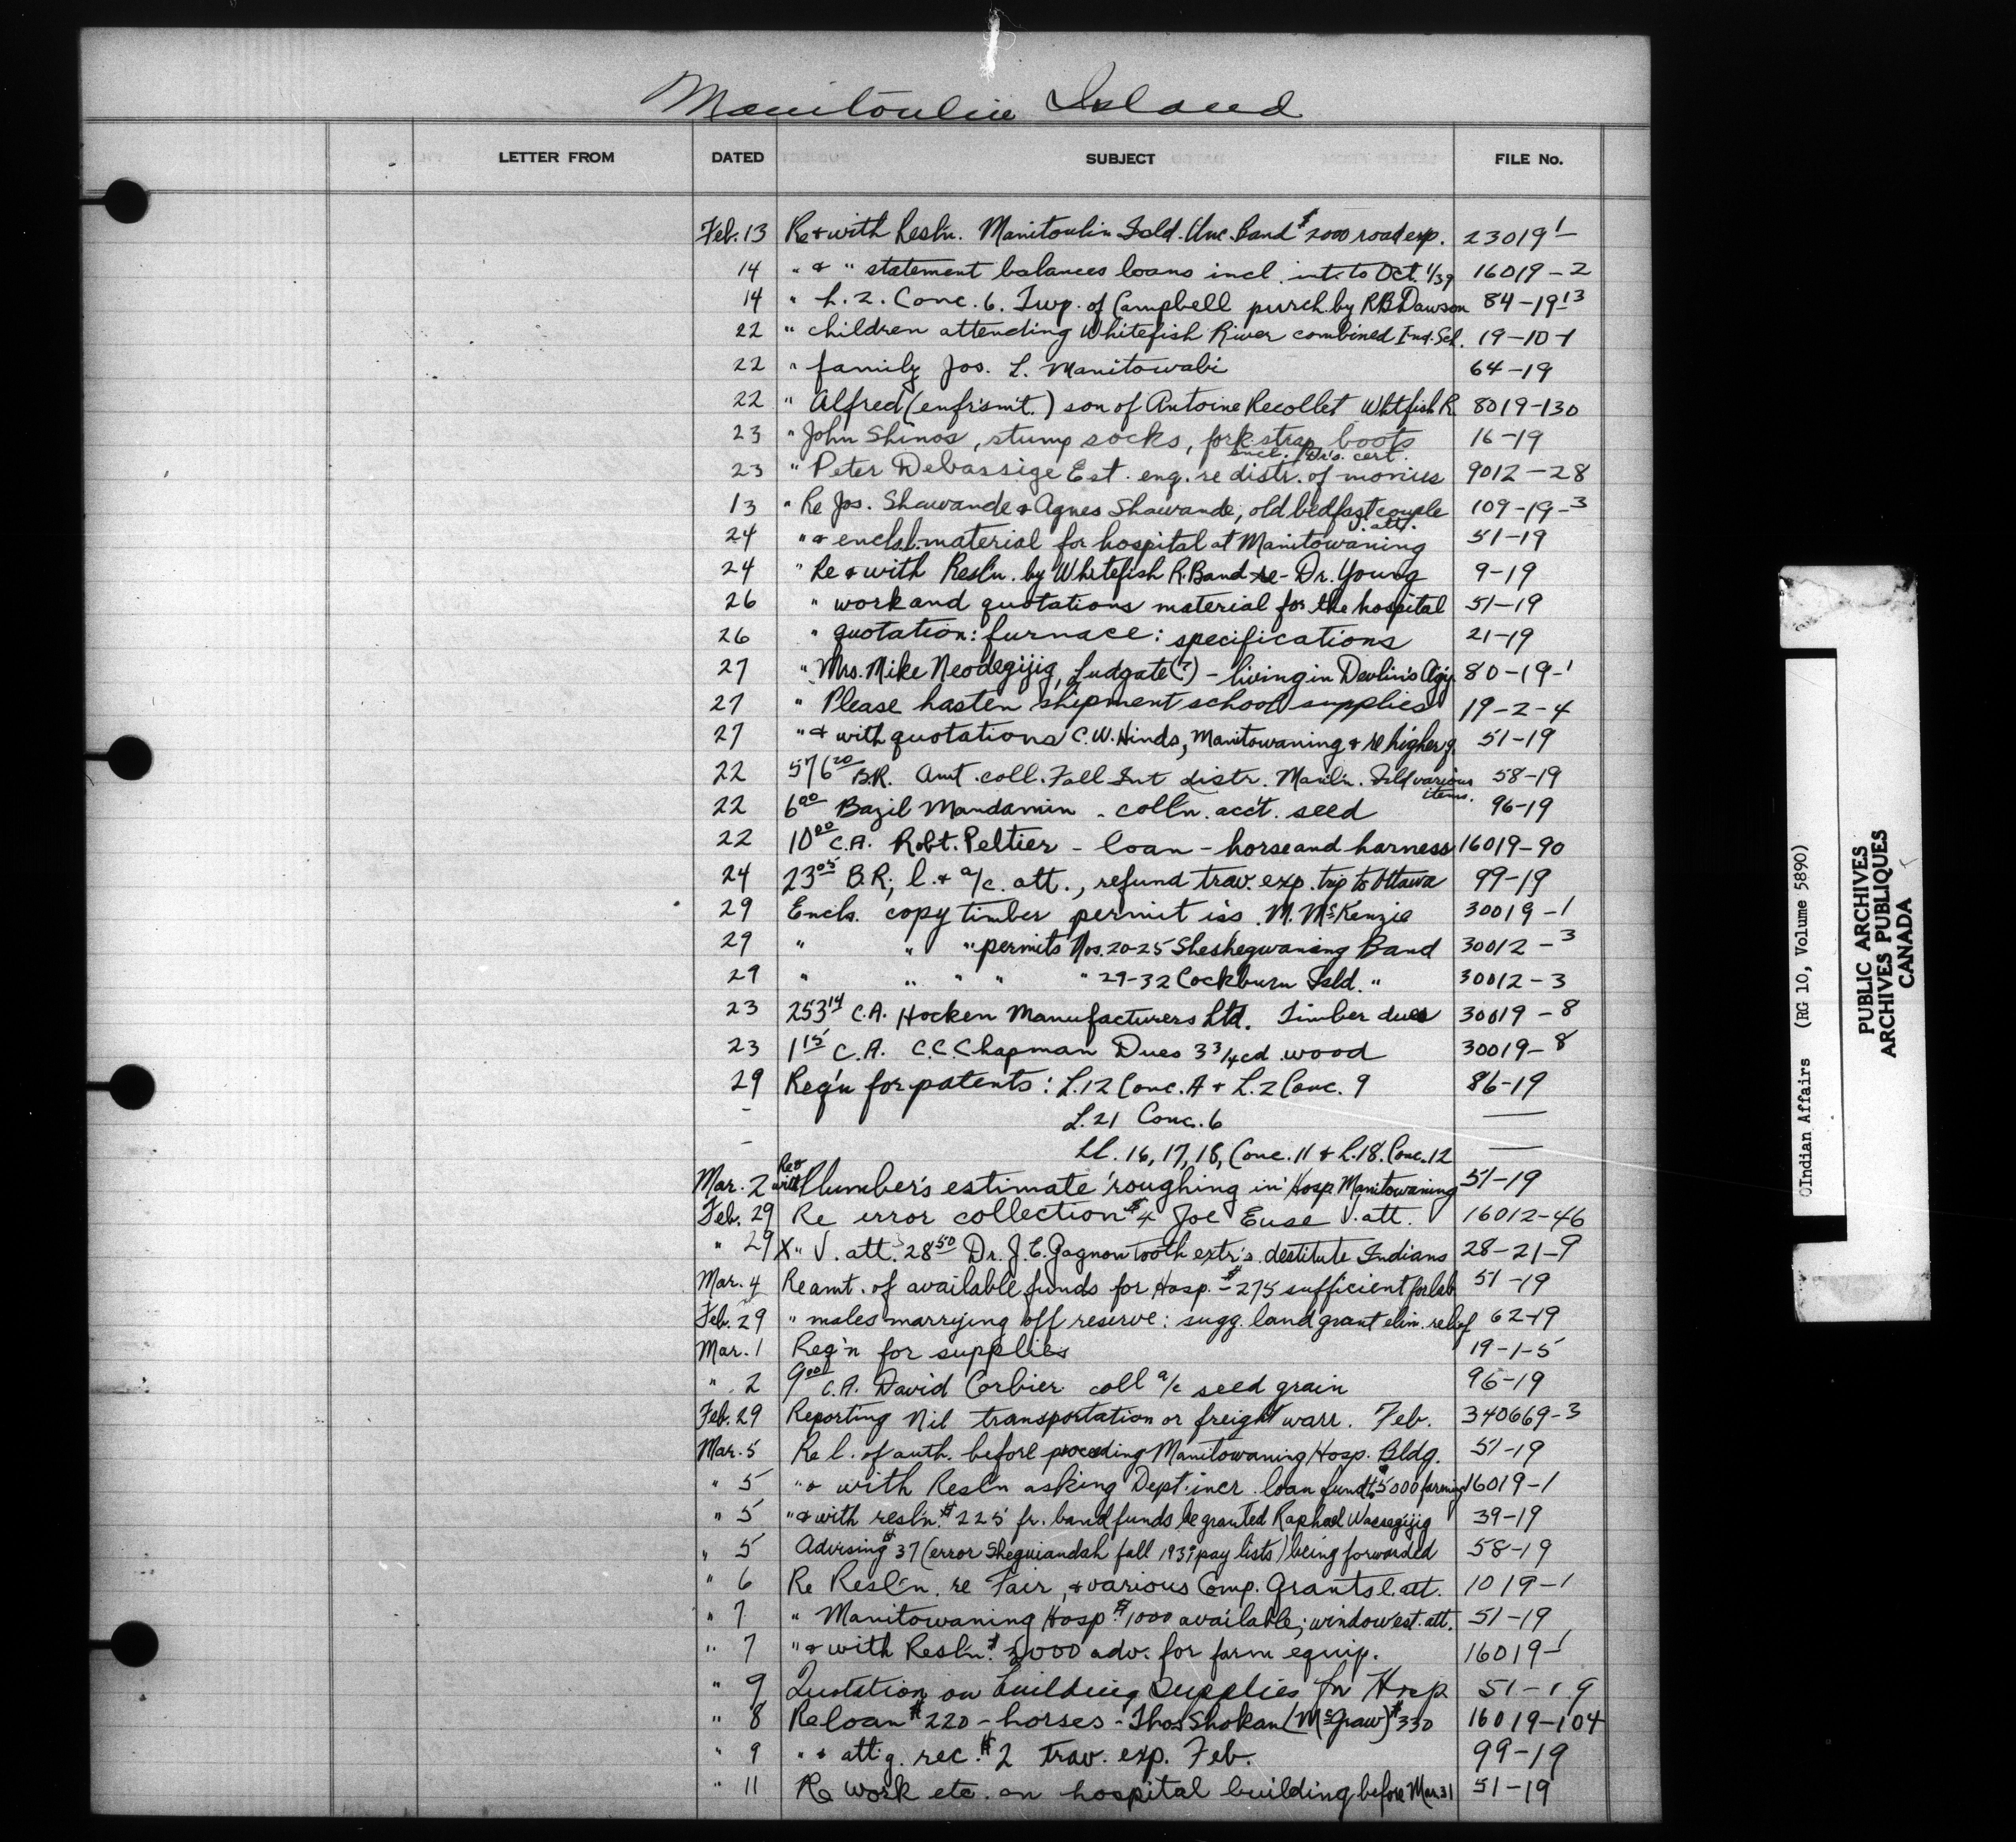 Manitoulin Island
LETTER FROM DATED SUBJECT FILE No.
Feb. 13 Re & with Resl'n. Manitoulin Isld. Unc. Band $2000 road exp. 23019-1
14 " & " statement balances loans incl. int. to Oct. 1/39 16019-2
14 " L. 2. Conc. 6. Twp. of Campbell purch. by R.B. Dawson 84-19-13
22 " children attending Whitefish River combined Ind. Sch. 19-10-1
22 " family Jos. L. Manitowabi 64-19
22 " Alfred (enfr'sm't.) son of Antoine Recollet Whitfish R. 8019-130
23 " John Shinos, stump socks, fork strap boots 16-19
incl. Dr's. cert.
23 " Peter Debassige Est. enq. re distr. of monies 9012-28
13 " Re Jos. Shawande & Agnes Shawande, old bedfast couple 109-19-3
l. att.
24 " & encls. l. material for hospital at Manitowaning 51-19
24 " Re & with Resl'n. by Whitefish R. Band re - Dr. Young 9-19
26 " work and quotations material for the hospital 51-19
26 " quotation: furnace: specifications 21-19
27 " Mrs. Mike Neodegijig, Ludgate (?) - living in Devlin's Agy. 80-19-1
27 " Please hasten shipment school supplies 19-2-4
27 " & with quotations C.W. Hinds, Manitowaning & re higher q. 51-19
22 576 20 B.R. Amt. coll. Fall Int distr. Manl'n. Isld various 58-19
items.
22 6 00 Bazil Mandamin - coll'n. acc't. seed 96-19
22 10 00 C.A. Robt. Peltier - loan - horse and harness 16019-90
24 23 05 B.R.; l. & a/c. att., refund trav. exp. trip to Ottawa 99-19
29 Encls. copy timber permit iss. M. McKenzie 30019-1
29 " " " permits Nos. 20-25 Sheshegwaning Band 30012-3
29 " " " " " 29-32 Cockburn Isld. " 30012-3
23 253 14 C.A. Hocken Manufacturers Ltd. Timber dues 30019-8
23 1 15 C.A. C.C. Chapman Dues 3 3/4 cd wood 30019-8
29 Reg'n for patents: L. 12 Conc. A & L. 2 Conc. 9 86-19
- L. 21 Conc. 6 —
- LL. 16, 17, 18, Conc. 11 & L. 18. Conc. 12 —
Re &
Mar. 2 with Plumber's estimate 'roughing in' Hosp. Manitowaning 51-19
Feb. 29 Re error collection $4 Joe Euse l. att. 16012-46
" 29 X " V. att. 28 50 Dr. J.E. Gagnon tooth extr's. destitute Indians 28-21-9
Mar. 4 Re amt. of available funds for Hosp. - $275 sufficient for lab 51-19
Feb. 29 " males marrying off reserve: sugg. land grant elim. relief 62-19
Mar. 1 Req'n for supplies 19-1-5
" 2 9 00 C.A. David Corbier coll a/c seed grain 96-19
Feb. 29 Reporting Nil transportation or freight warr. Feb. 340669-3
Mar. 5 Re l. of auth. before proceeding Manitowaning Hosp. Bldg. 51-19
" 5 " & with Resl'n asking Dept. incr. loan fund to $5000 farming 16019-1
" 5 " & with resl'n. $225 fr. band funds be granted Raphael Wassegijig 39-19
" 5 Advising $37 (error Sheguiandah fall 1939 pay lists) being forwarded 58-19
" 6 Re Resl'n. re Fair, & various Comp. Grants l. att. 1019-1
" 7 " Manitowaning Hosp. $1000 available; window est. att. 51-19
" 7 " & with Resl'n. $5000 adv. for farm equip. 16019-1
" 9 Quotation on building supplies for Hosp 51-19
" 8 Re loan $220 - horses - Thos Shokan (McGraw) $330 16019-104
" 9 " & att'g. rec. $2 trav. exp. Feb. 99-19
" 11 Re work etc. on hospital building before Mar. 31 51-19
Indian Affairs (RG 10, Volume 5890)
PUBLIC ARCHIVES
ARCHIVES PUBLIQUES
CANADA